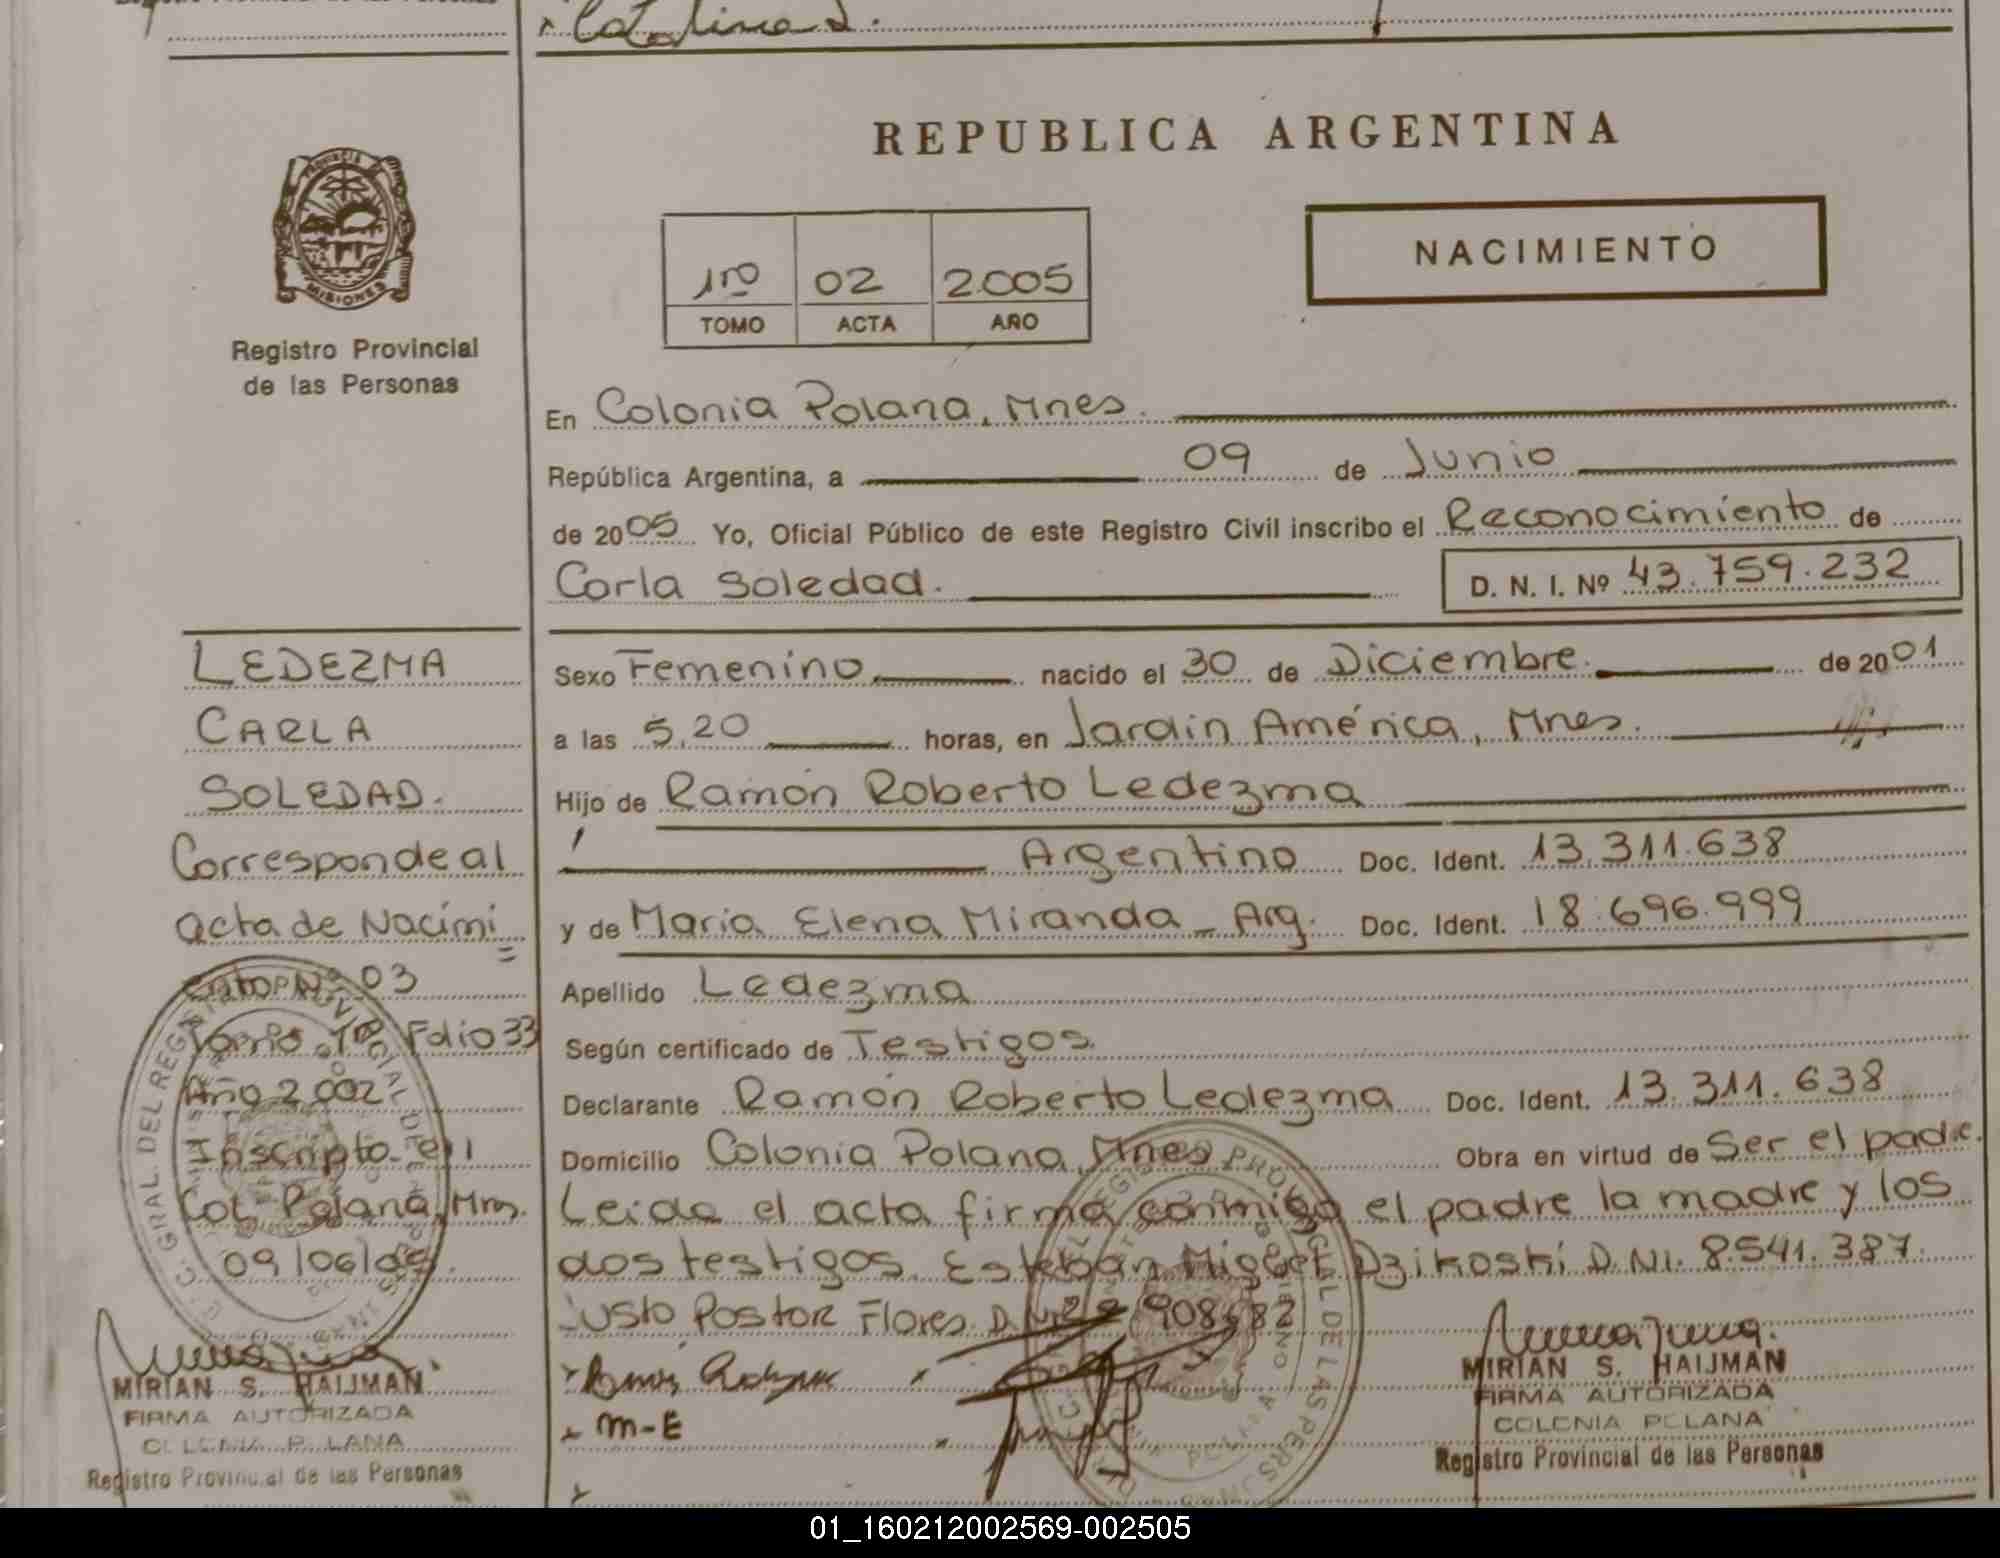 Catalina L.
PROVINCIA
MISIONES
Registro Provincial
de las Personas
REPUBLICA ARGENTINA
NACIMIENTO
1ro 02 2005
TOMO ACTA AÑO
En Colonia Polana, Mnes.
República Argentina, a 09 de Junio
de 2005 Yo, Oficial Público de este Registro Civil inscribo el Reconocimiento de
Carla Soledad.
D. N. I. Nº 43.759.232
LEDEZMA
CARLA
SOLEDAD.
Corresponde al
acta de Nacimi=
ento Nº 03
Tomo 1º Folio 33
Año 2002
Inscripto en
Col. Polana, Mns.
09/06/05.
MIRIAN S. HAIJMAN
FIRMA AUTORIZADA
COLONIA POLANA
Registro Provincial de las Personas
Sexo Femenino nacido el 30 de Diciembre. de 2001
a las 5,20 horas, en Jardín América, Mnes.
Hijo de Ramón Roberto Ledezma
Argentino Doc. Ident. 13.311.638
y de Maria Elena Miranda - Arg. Doc. Ident. 18.696.999
Apellido Ledezma
Según certificado de Testigos.
Declarante Ramón Roberto Ledezma Doc. Ident. 13.311.638
Domicilio Colonia Polana, Mnes Obra en virtud de Ser el padre.
Leida el acta firma conmigo el padre la madre y los
dos testigos. Esteban Miguel Dzikoski D.NI. 8.541.387.
Justo Pastor Flores. D.
M-E
MIRIAN S. HAIJMAN
FIRMA AUTORIZADA
COLONIA POLANA
Registro Provincial de las Personas
01_160212002569-002505